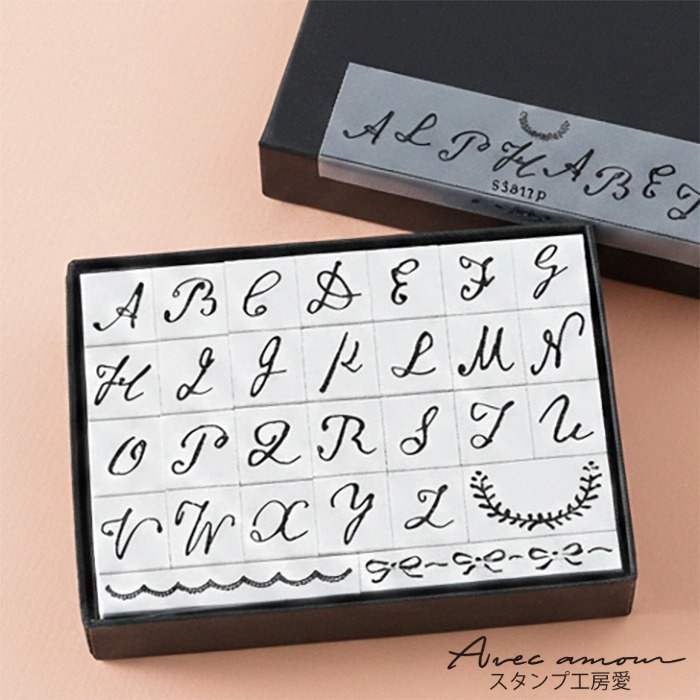 ALPHABET
A B C D E F G
H I J K L M N
O P Q R S T U
V W X Y Z
Avec amour
スタンプ工房愛